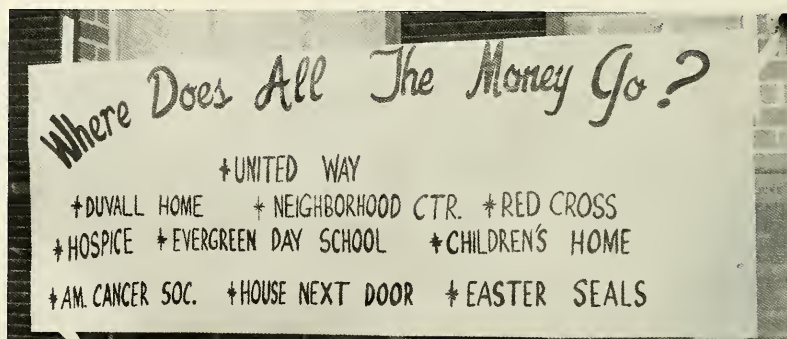 Where Does All The Money Go?
*UNITED WAY
*DUVALL HOME *NEIGHBORHOOD CTR. *RED CROSS
*HOSPICE *EVERGREEN DAY SCHOOL *CHILDREN'S HOME
*AM. CANCER SOC. *HOUSE NEXT DOOR *EASTER SEALS